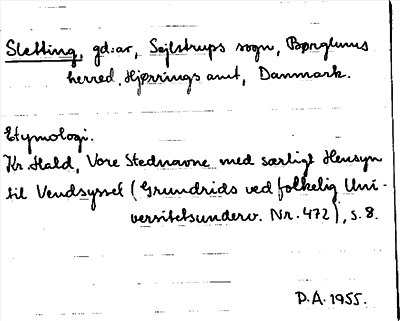 Sletting, gd:ar, Sejlstrups sogn, Børglums
herred, Hjørrings amt, Danmark.
Etymologi.
Kr. Hald, Vore Stednavne med særligt Hensyn
til Vendsyssel (Grundrids ved folkelig Uni-
versitetsunderv. Nr. 472), s. 8.
P.A. 1955.